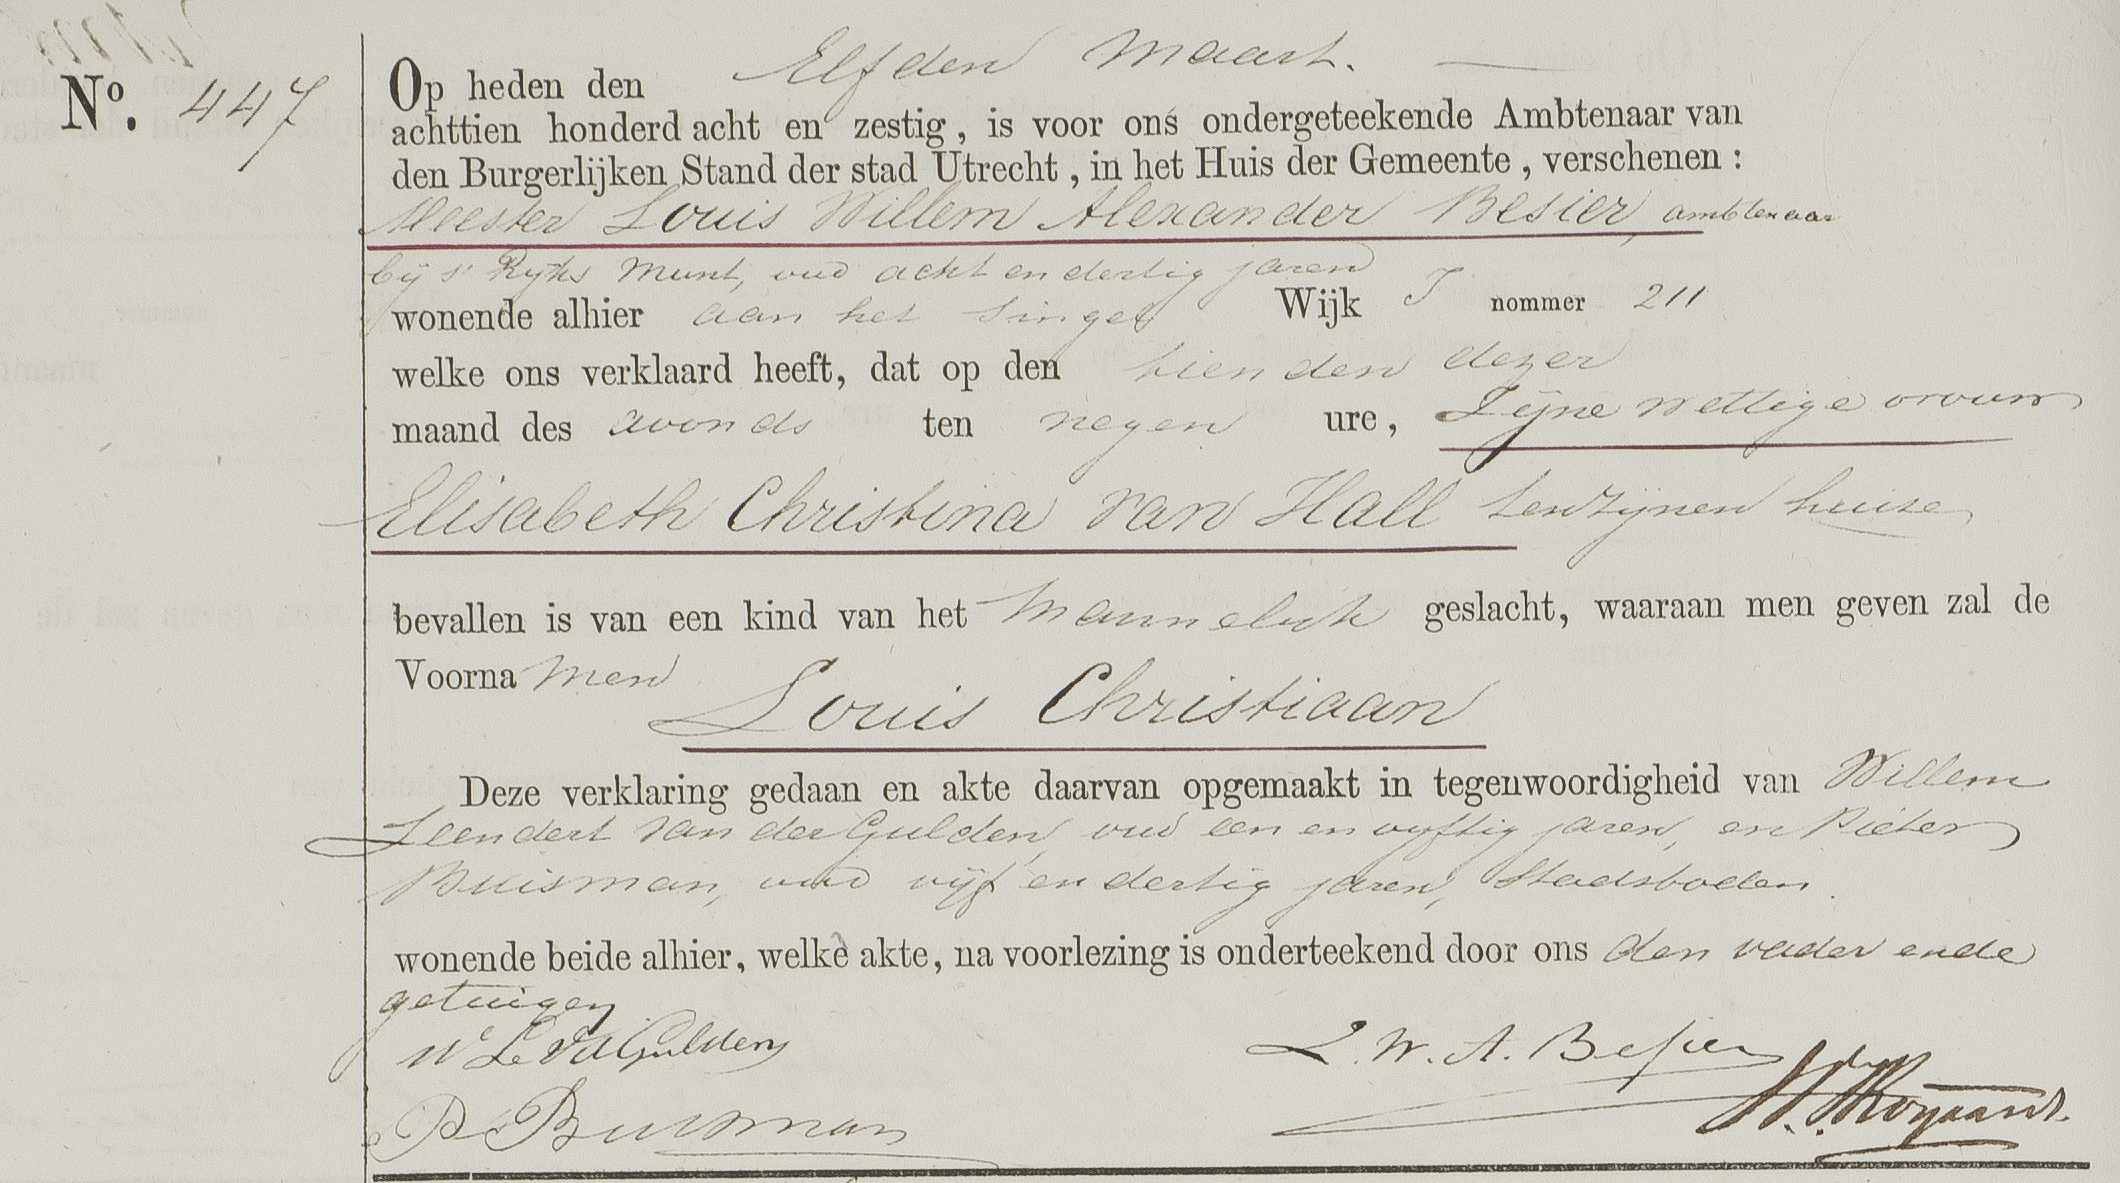 No. 447
Op heden den Elfden Maart.
achttien honderd acht en zestig, is voor ons ondergeteekende Ambtenaar van
den Burgerlijken Stand der stad Utrecht, in het Huis der Gemeente, verschenen:
Meester Louis Willem Alexander Besier, ambtenaar
bij 's Ryks Munt, oud acht en dertig jaren
wonende alhier aan het Singel Wijk I nommer 211
welke ons verklaard heeft, dat op den tienden dezer
maand des avonds ten negen ure, Zijne wettige vrouw
Elisabeth Christina van Hall ten zijnen huize
bevallen is van een kind van het Mannelijk geslacht, waaraan men geven zal de
Voornamen Louis Christiaan
Deze verklaring gedaan en akte daarvan opgemaakt in tegenwoordigheid van Willem
Leendert van der Gulden, oud een en vyftig jaren, en Pieter
Buisman, oud vijf en dertig jaren, Stadsboden.
wonende beide alhier, welke akte, na voorlezing is onderteekend door ons den vader en de
getuigen
W Le vd Gulden
L. W. A. Besier
P Buisman
Royaards.